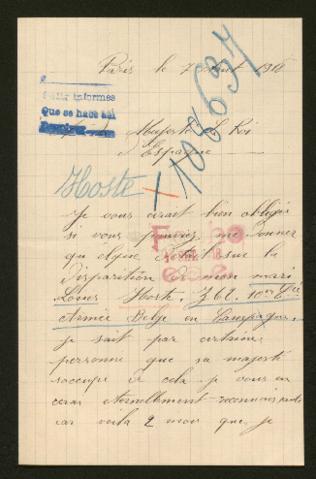 Paris le 7 Aout 1916
Pedir informes
Que se hace así
108637
Majesté le Roi
d'Espagne
Hoste +
Je vous serait bien obligée
si vous pourriez me donner
quelque sur la
disparition de mon mari
Louis Hoste. Z62.
Armée Belge en Campagne,
je sait par certaine
personne que sa majesté
s'occupe de cela je vous en
serai éternellement reconnaissante
car voila 2 mois que je